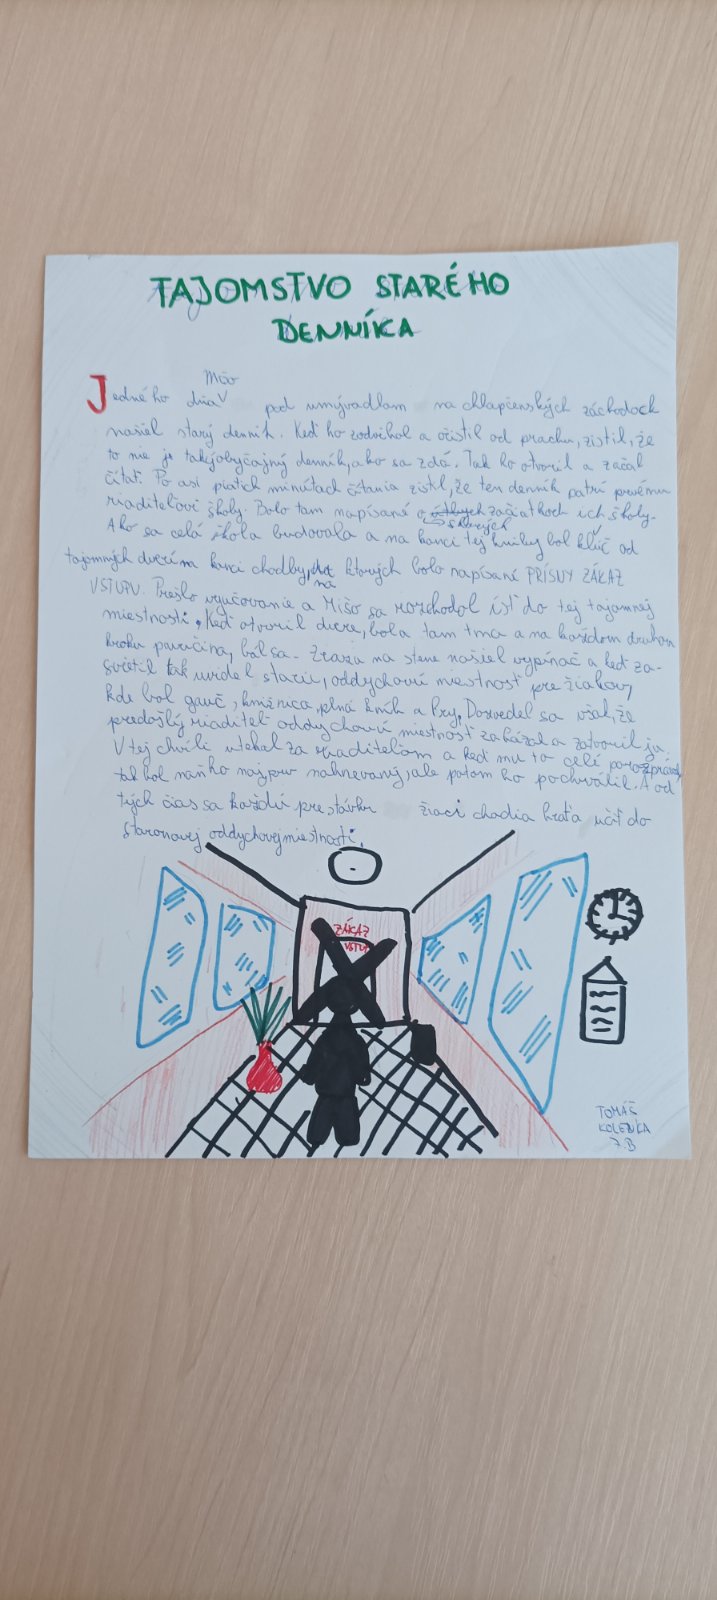 TAJOMSTVO STARÉHO
DENNÍKA
Mišo
Jedného dňa pod umývadlam na chlapčenských záchodoch
našiel starý denník. Keď ho zodvihol a očistil od prachu, zistil, že
to nie je takýobyčajný denník, ako sa zdá. Tak ho otvoril a začal
čítať. Po asi piatich minútach čítania zistil, že ten denník patrí prvému
riaditeľovi školy. Bolo tam napísané o začiatkoch ich školy.
skorých
Ako sa celá škola budovala a na konci tej knihy bol kľúč od
tajomných dverí na konci chodby, ktorých bolo napísané PRÍSNY ZÁKAZ
na
VSTUPU. Prešlo vyučovanie a Mišo sa rozhodol ísť do tej tajomnej
miestnosti. Keď otvoril dvere, bola tam tma a na každom druhom
kroku pavučina, bál sa. Zrazu na stene našiel vypínač a keď za-
svietil tak uvidel starú, oddychovú miestnosť pre žiakov,
kde bol gauč, knižnica, plná kníh a hry. Dozvedel sa však, že
predošlý riaditeľ oddychovú miestnosť zakázal a zatvoril ju.
V tej chvíli utekal za riaditeľom a keď mu to celé
tak bol naňho najprv nahnevaný, ale potom ho pochválil. A od
tých čias sa každú prestávku žiaci chodia hrať a učiť do
staronovej oddychovej miestnosti.
ZÁKAZ
VSTUP
TOMÁŠ
KOLENKA
7.B